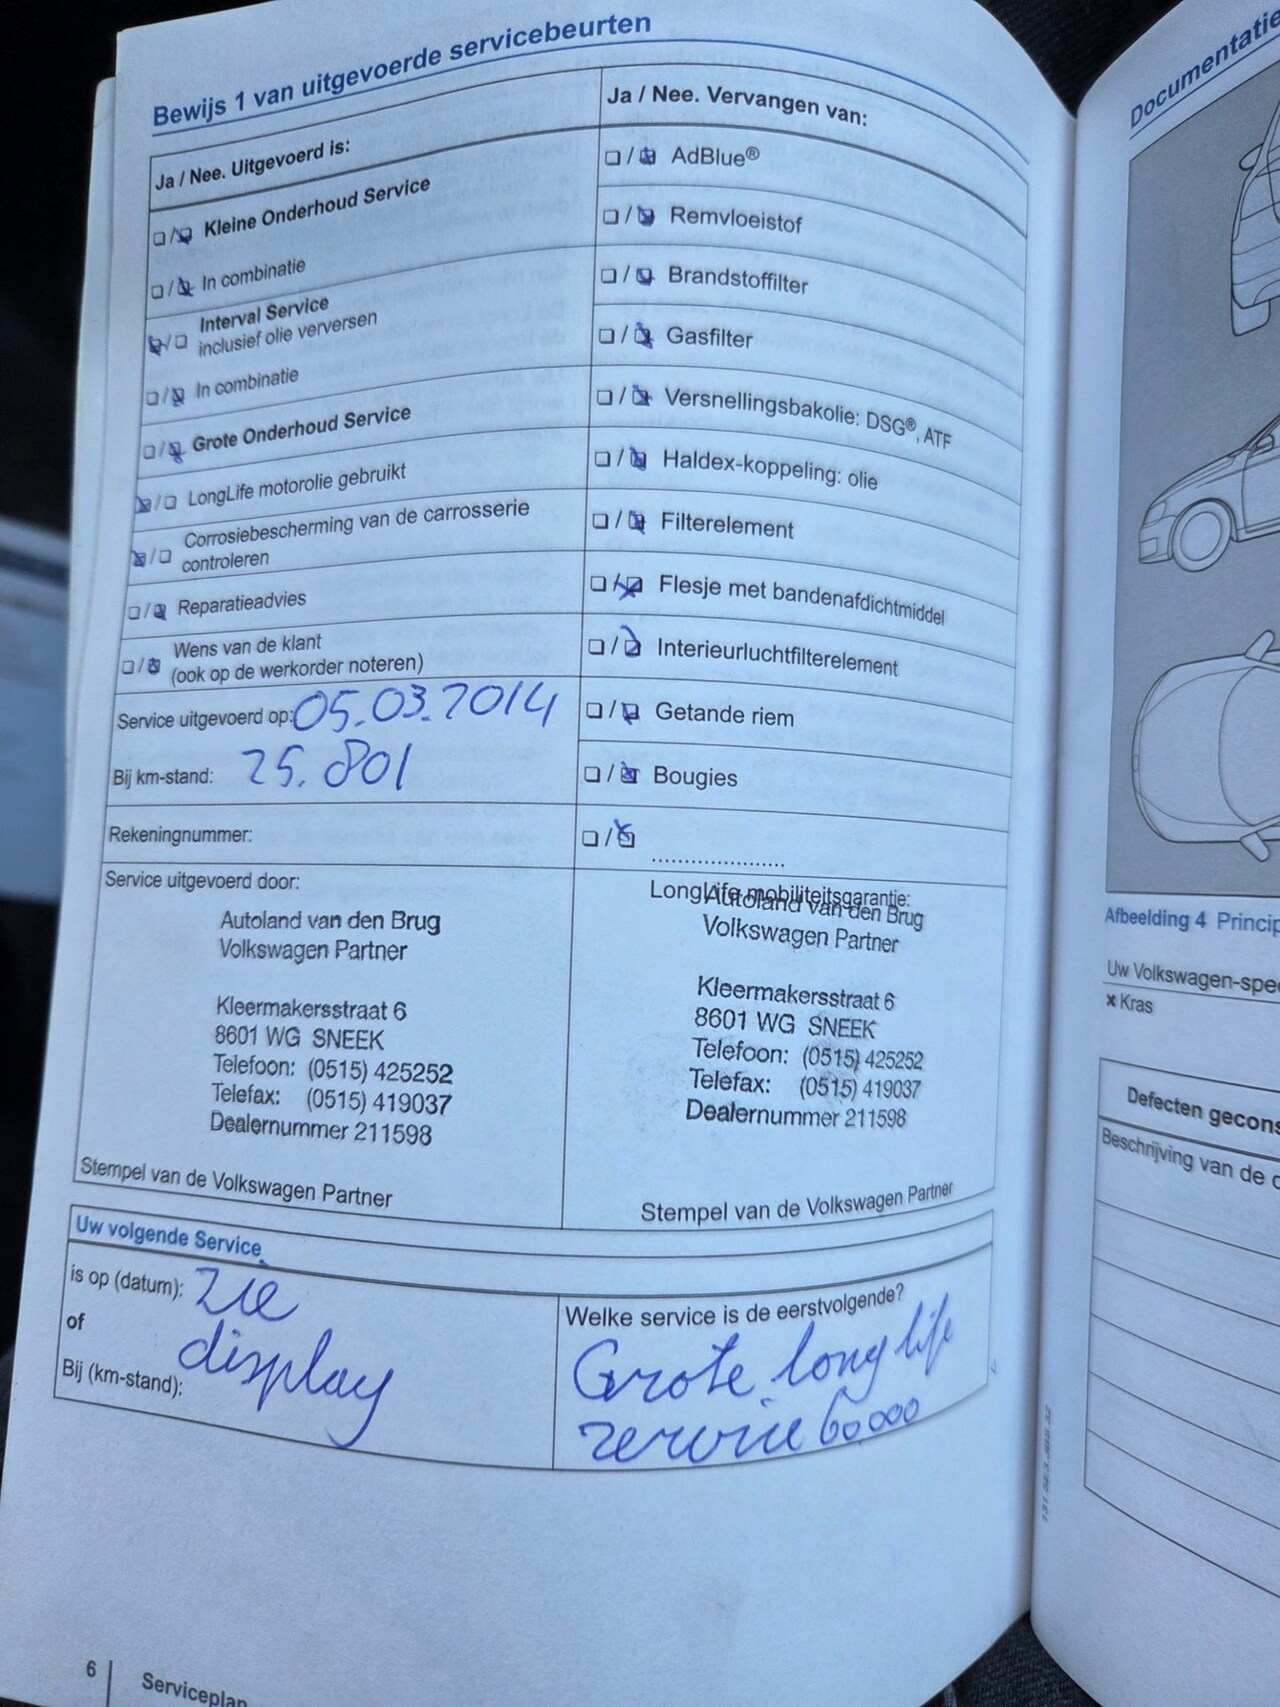 Bewijs 1 van uitgevoerde servicebeurten
Ja / Nee. Uitgevoerd is:
❏ / ❏ Kleine Onderhoud Service
❏ / ❏ In combinatie
❏ / ❏ Interval Service
inclusief olie verversen
❏ / ❏ In combinatie
❏ / ❏ Grote Onderhoud Service
❏ / ❏ LongLife motorolie gebruikt
❏ / ❏ Corrosiebescherming van de carrosserie
controleren
❏ / ❏ Reparatieadvies
❏ / ❏ Wens van de klant
(ook op de werkorder noteren)
Service uitgevoerd op: 05.03.2014
Bij km-stand: 25.801
Rekeningnummer:
Ja / Nee. Vervangen van:
❏ / ❏ AdBlue®
❏ / ❏ Remvloeistof
❏ / ❏ Brandstoffilter
❏ / ❏ Gasfilter
❏ / ❏ Versnellingsbakolie: DSG®, ATF
❏ / ❏ Haldex-koppeling: olie
❏ / ❏ Filterelement
❏ / ❏ Flesje met bandenafdichtmiddel
❏ / ❏ Interieurluchtfilterelement
❏ / ❏ Getande riem
❏ / ❏ Bougies
❏ / ❏ ......................
Service uitgevoerd door:
Autoland van den Brug
Volkswagen Partner
Kleermakersstraat 6
8601 WG SNEEK
Telefoon: (0515) 425252
Telefax: (0515) 419037
Dealernummer 211598
Stempel van de Volkswagen Partner
LongLife mobiliteitsgarantie:
Autoland van den Brug
Volkswagen Partner
Kleermakersstraat 6
8601 WG SNEEK
Telefoon: (0515) 425252
Telefax: (0515) 419037
Dealernummer 211598
Stempel van de Volkswagen Partner
Uw volgende Service
is op (datum): zie
of display
Bij (km-stand):
Welke service is de eerstvolgende?
Grote long life
service 60000
6 Serviceplan
Documentatie
Afbeelding 4 Princip
Uw Volkswagen-spe
× Kras
Defecten gecons
Beschrijving van de